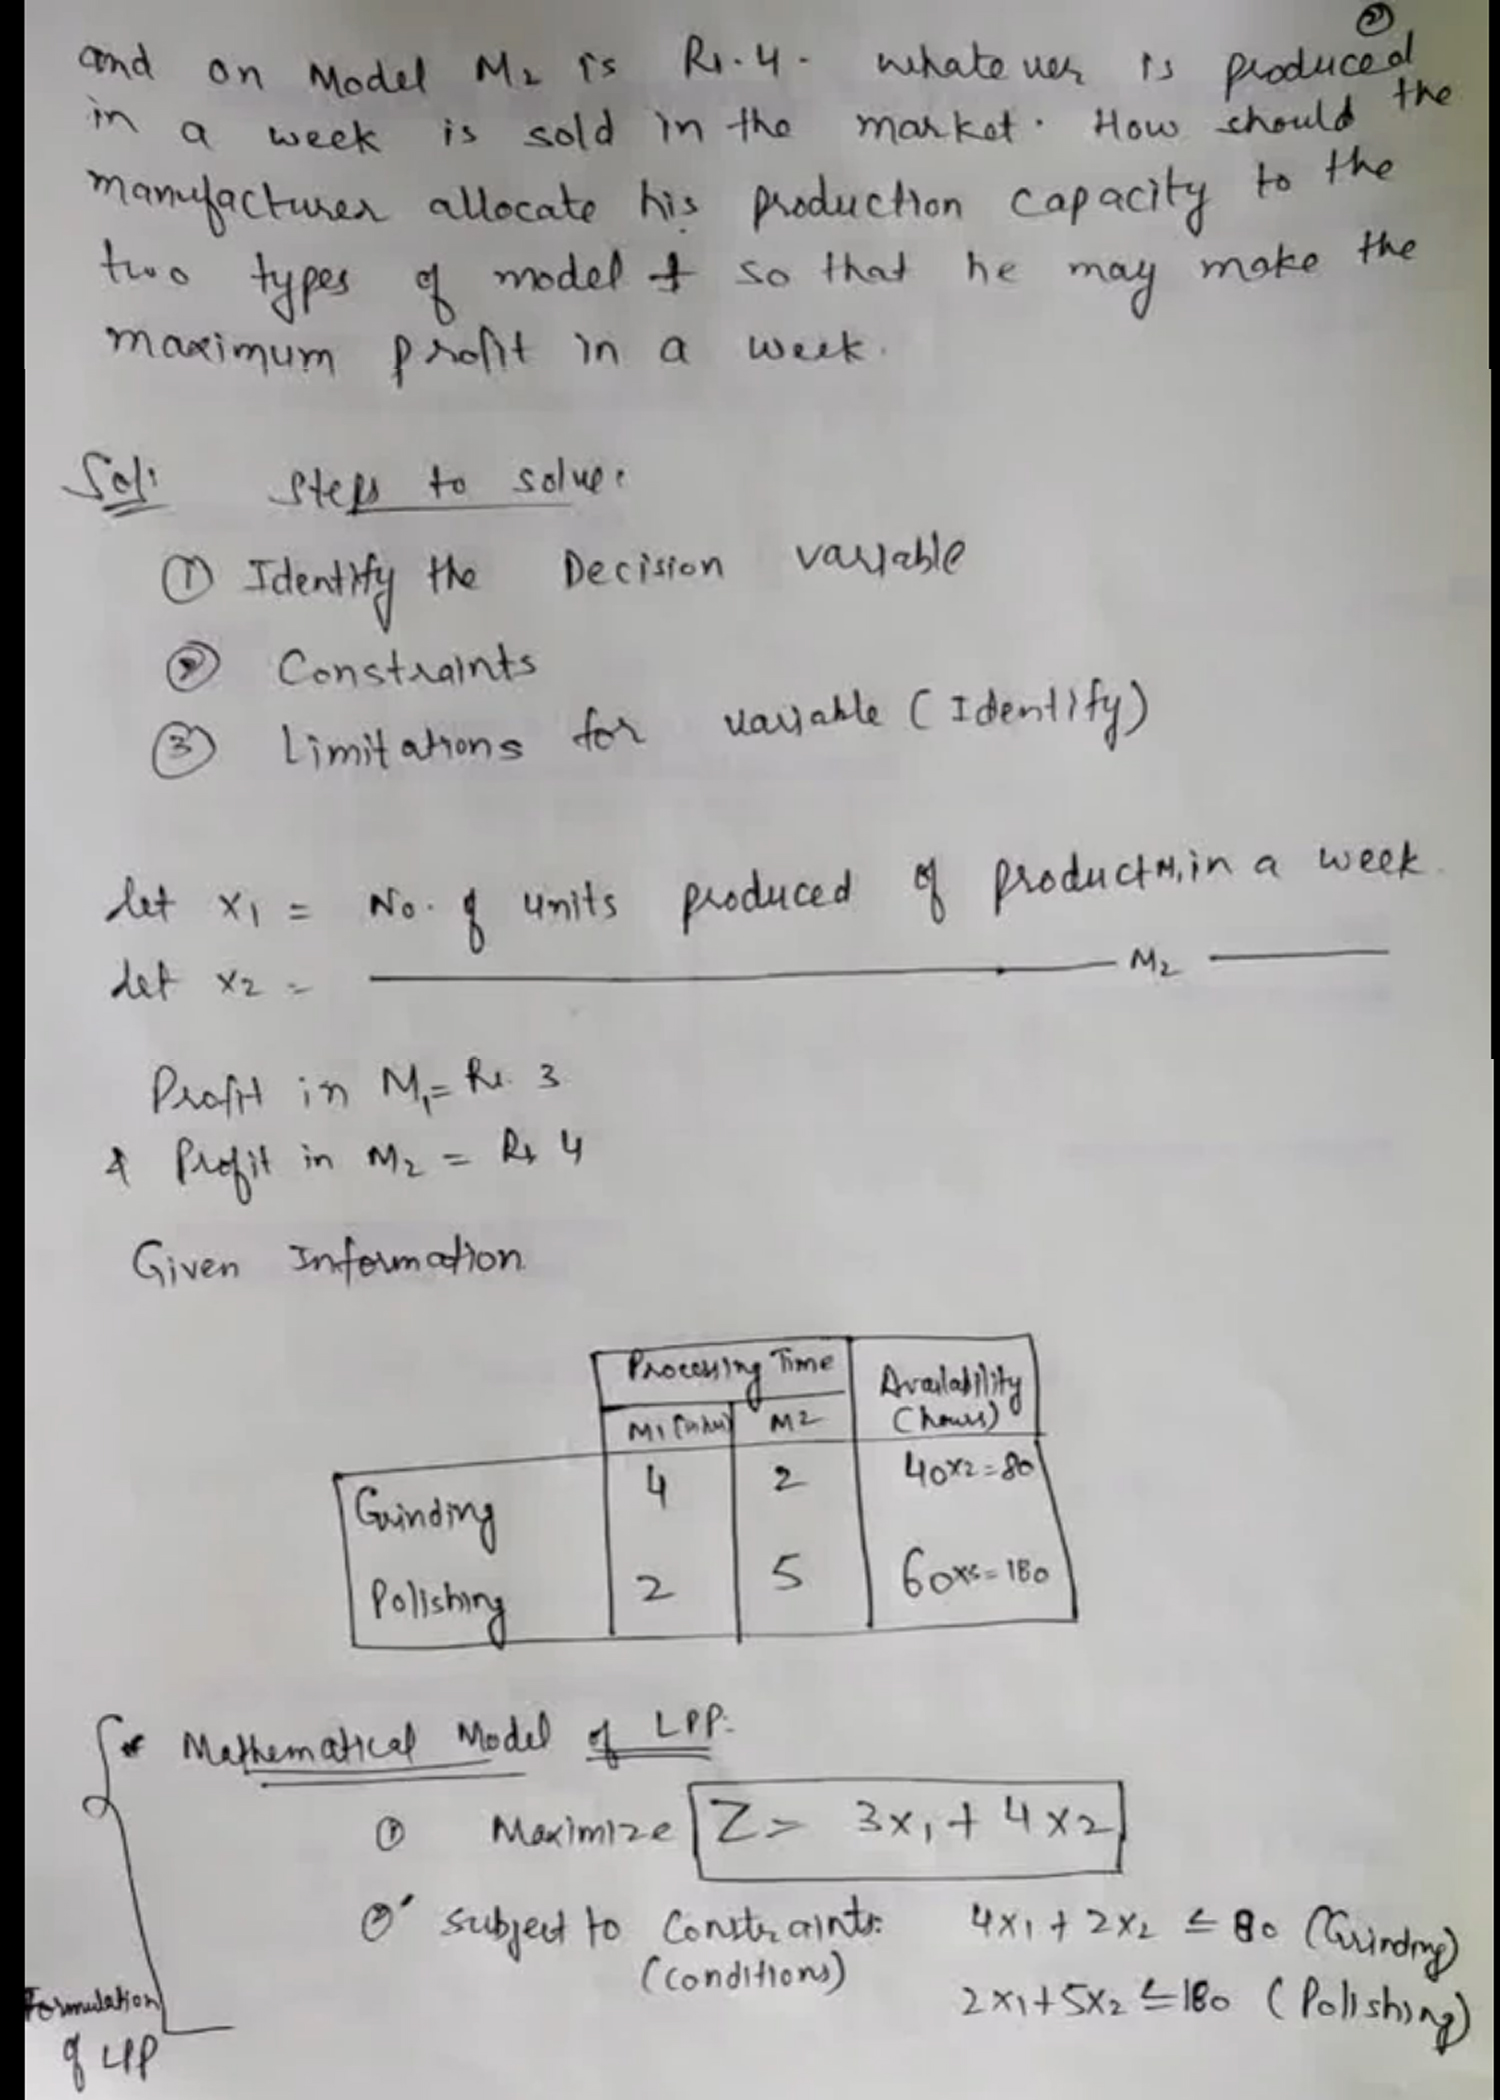 2
and on Model M2 is Rs. 4. whatever is produced
in a week is sold in the market. How should the
manufacturer allocate his production capacity to the
two types of model so that he may make the
maximum profit in a week.
Sol: Steps to solve:
① Identify the Decision variable
② Constraints
③ Limitations for variable (Identify)
let x1 = No. of units produced of product M1 in a week.
let x2 = M2
Profit in M1 = Rs. 3
& Profit in M2 = Rs 4
Given Information
Processing Time Availability (hours)
M1 M2
Grinding 4 2 40x2=80
Polishing 2 5 60x3=180
* Mathematical Model of LPP:
① Maximize Z = 3x1 + 4x2
② Subject to Constraints: 4x1 + 2x2 ≤ 80 (Grinding)
(conditions) 2x1 + 5x2 ≤ 180 (Polishing)
Formulation
of LPP